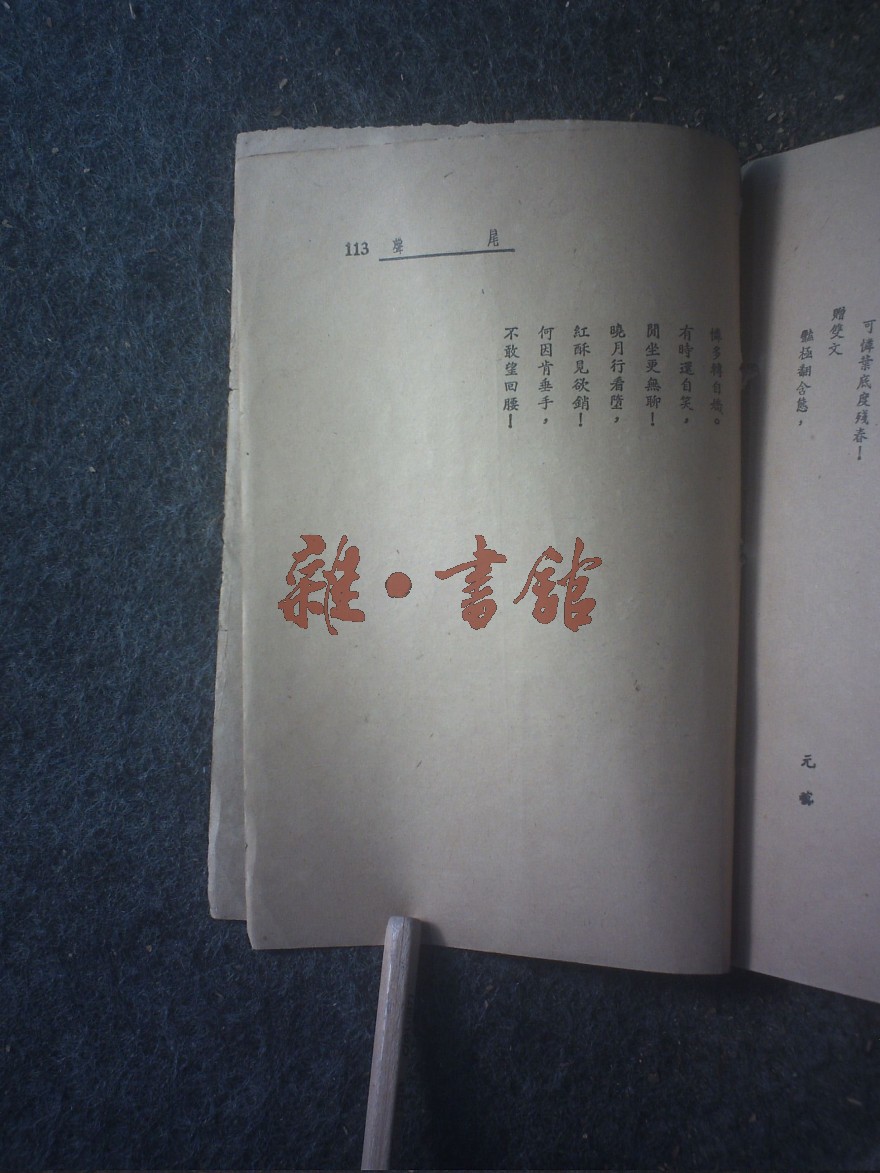 可憐葉底度殘春!
贈雙文
元稹
豔極翻含態,
尾聲 113
憐多轉自嬌。
有時還自笑,
閒坐更無聊!
曉月行看墮,
紅酥見欲銷!
何因肯垂手,
不敢望回腰!
雜·書館